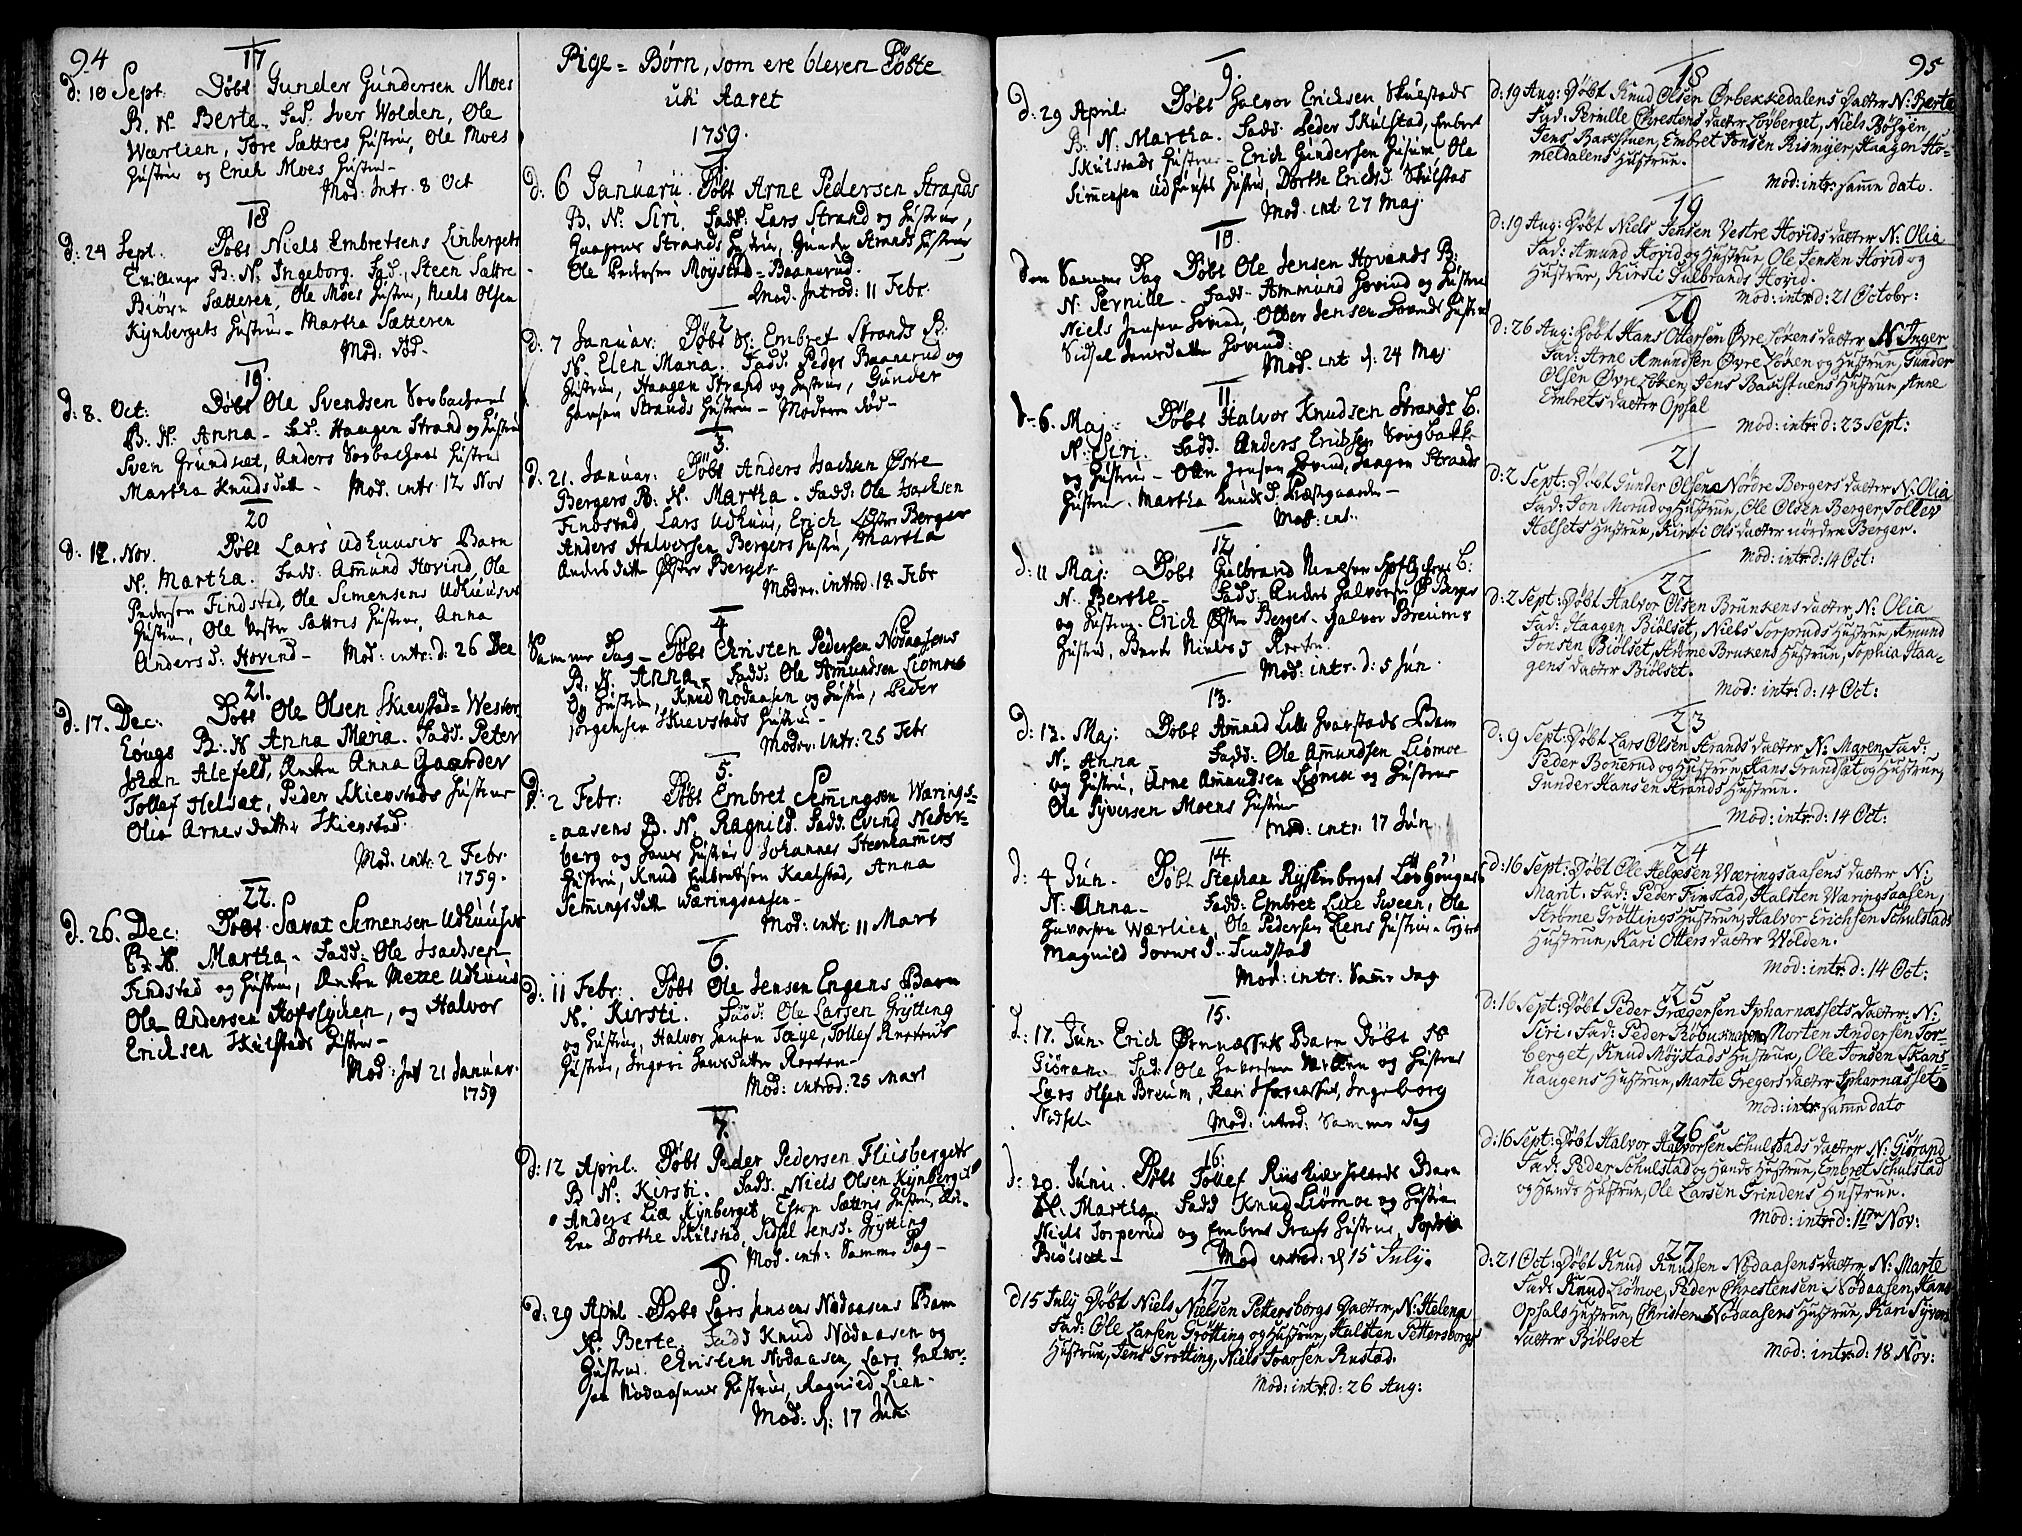 94
17
d: 10 Sept. Døbt Gunder Gundersen Moes
B. N. Berte. Fad. Iver Wolden, Ole
Wærlien, Tore Sættres Hustru, Ole Moes
Hustru og Erich Moes Hustru
Mod. Intr. 8 Oct
18
d: 24 Sept. Døbt Niels Embretsens Linbergets
Tvillinge B: N. Ingeborg. Fad. Steen Sættre
Biörn Sætteren, Ole Moes Hustru, Niels Olsen
Kynbergets Hustru - Martha Sætteren
Mod: død.
19.
d: 8. Oct: Døbt Ole Svendsen
B. N. Anna - Fad: Haagen Strand og Hustru
Sven Grundsæt, Anders Hustru
Martha Knudsdatt - Mod. intr. 12 Nov
20
d: 12. Nov. Døbt Lars Udhuusis Barn
N. Martha. Fadd: Ammund Hovind, Ole
Pedersen Findstad, Ole Simensens Udhuuses
Hustru, Ole Vester Sættris Hustru, Anna
Andersd. Hovind - Mod: intr: d: 26 Dec
21.
d: 17. Dec: Døbt Ole Olsen Skievstad- Wester
Lougs B: N Anna Maria. Fadd. Peter
Johan Alefeld, Enken Anna Gaarder
Tollef Helsæt, Peder Skievstads Hustrue
Olia Arnesdatter Skievstad.
Mod. intr. 2 Febr.
1759.
22.
d. 26. Dec: Døbt Simensen Udhuuses
B: N. Martha, - Fadd: Ole Isachsen
Findstad og Hustru, Enken Mette Udhuus
Ole Andersen Hofslycken, og Halvor
Erichsen Skulstads Hustru -
Mod: Int 21 Januar.
1759
Pige = Børn, som ere bleven Døbte
udi Aaret
1759.
1
d: 6 Januarii Døbt Arne Pedersen Strands
B. N: Siri. Fadd: Lars Strand og Hustrue,
Haagens Strands Hustru, Gunder Strands Hustrue
Ole Pedersen Moystad - Baanerud.
Mod. Introd: 11 Febr.
2
d: 7 Januar: Døbt Embret Strands B:
N. Elen Maria. Fadd: Peder Baanerud og
Hustrue, Haagen Strand og Hustrue, Gunder
Hansen Strands Hustru - Moderen død -
3.
d. 21. Januar: Døbt Anders Isachsen Østre
Bergers B: N. Martha - Fadd: Ole Isachsen
Findstad, Lars Udhuus, Erich Øster Berger
Anders Halvorsen Bergers Hustru, Martha
Andersdatt Øster Berger
Moder. introd. 18 Febr
4
Samme Dag - Døbt Christen Pedersen Nodaasens
B. N. Anna - Fadd: Ole Ammundsen Liømoe
og Hustrue, Knud Nodaasen og Hustru, Peder
Jörgensen Skievstads Hustru -
Moder. Intr: 25 Febr
5.
d: 2 Febr: Døbt Embret Semmingsen Wærings-
=aasens B. N. Ragnild. Fadd: Evind Neder-
berg og Hans Hustru Johannes Steenhammers
Hustru, Knud Embretsen Kaalstad, Anna
Semmingsdatt Wæringsaasen -
Mod: intr: 11 Mart
6.
d: 11 Febr: Døbt Ole Jensen Engens Barn
N. Kirsti. Fadd: Ole Larsen Grytting
og Hustru, Halvor Hansen Toeye, Tollef
Hustru, Ingeri Hansdatter Roeten -
Mod: introd: 25 Mart
7.
d: 12 April. Døbt Peder Pedersen Fliisbergets
B N: Kirsti. Fadd. Niels Olsen Kynberget
Anders Lie Kynberget, Esten Sættris Hustru,
Dorthe Skulstad, Sidsel Jensd: Grytting
Mod. intr: Samme Dag -
8.
d: 29 April - Døbt Lars Jensens Nodaasens Barn
N. Berte Fadd Knud Nodaasen og
Hustrue. Christen Nodaasen, Lars Halvor-
sen Nodaasens Hustrue, Ragnild Lien -
Mod: d: 17 Jun.
95
9.
d: 29 April Døbt Halvor Erichsen Skulstads
B: N. Martha. Fadd: Peder Skulstad, Embret
Skulstads Hustrue - Erich Gundersen Ole
Simensen Udhuuses Hustru, Dorthe Erichsd. Skulstad
Mod. int: 27 Maj
10
den Samme Dag Døbt Ole Jensen Hovinds B:
N. Pernille - Fadd - Ammund Hovind og Hustrue
Niels Jensen Hovind, Hovinds Hustrue
Sidsel Jensdatter Hovind:
Mod. int d: 24 Maj
11
d: 6. Maj: Døbt Halvor Knudsen Strands B.
N. Siri. Fadd. Anders Erichsen
og Hustru - Jensen Hovind, Haagen Strands
Hustrue. Martha Knudsd. Præstgaarden -
Mod. int:
12
d: 11 Maj: Døbt Gulbrand B.
N. Berthe - Fadd: Anders Halvorsen Ø Berger
og Hustrue - Erich Øster Berger - Halvor Breums
Hustrue, Berte Nielsd
Mod: intr. d: 5 Jun.
13.
d: 13. Maj: Døbt Amund Lille Barn
N. Anna Fadd: Ole Ammundsen Liömoe
og Hustru, Arne Ammundsen Liömoe og Hustrue
Ole Syversen Moens Hustrue
Mod: intr. 17 Jun
14.
d: 4 Jun - Døbt Stephan
N. Anna - Fadd: Embret Lille Sween, Ole
Halvorsen Wærlien, Ole Pedersen Liens Hustru -
Magnild Findstad
Mod: intr: Samme dag
15.
d: 17. Jun - Erich Barn Døbt N
Giöran - Fad: Ole og Hustrue
Lars Olsen Breum, Kari Ingeborg
Nødsel - Mod: introd: Samme Dag
16:
d: 20. Junii. Døbt Tollef Barn
N. Martha. Fadd Knud Liömoe og Hustrue
Niels Torperud og Embret Hustrue, Sophia
Biølset - Mod introd. d 15 July.
17
d 15 July Døbt Niels Nielsen Pettersborgs Datter, N: Helena
Fad: Ole Larsen Grötting og Hustrue, Halsten Pettersborgs
Hustrue, Jens Grötting, Niels Ivarsen Rustad.
Mod: intr: d: 26 Aug:
18
d: 19 Aug: Døbt Knud Olsen Ørbekkedalens Datter N: Berte
Fad: Pernille Chrestens Datter Løvberget, Niels Bösyen,
Jens Bakstuen, Embret Jonsen Rismyer, Haagen Ho-
meldalens Hustrue.
Mod: intr: samme dato.
19
d: 19 Aug: Døbt Niels Jensen Vestre Hovids Datter N: Olia
Fad: Amund Hovid og Hustrue, Ole Jensen Hovid og
Hustrue, Kirsti Gulbrands Hovid.
Mod: intr: d: 21 Octobr:
20
d: 26 Aug: Døbt Hans Ottersen Øvre Løkens Datter N: Inger
Fad: Arne Amundsen Øvre Løken og Hustrue, Gunder
Olsen Øvre Løken, Jens Bakstuens Hustrue, Anne
Embrets Datter Opsal
Mod: intr: d: 23 Sept:
21
d: 2 Sept: Døbt Gunder Olsens Nordre Bergers Datter N: Olia
Fad: Jon Morud og Hustrue, Ole Olsen Berger, Tollev
Helsets Hustrue, Kirsti Ols Datter nördre Berger.
Mod: intr: d: 14 Oct:
22
d: 2 Sept: Døbt Halvor Olsen Brunsens Datter N: Olia
Fad: Haagen Biølset, Niels Torpruds Hustrue, Amund
Jonsen Biølset, Strøme Brusens Hustrue, Sophia Haa-
gens Datter Biølset.
Mod: intr: d: 14 Oct:
23
d: 9 Sept: Døbt Lars Olsen Strands Datter N: Maren, Fad:
Peder Bonerud og Hustrue, Hans Grundsæt og Hustrue,
Gunder Hansen Strands Hustrue.
Mod: intr: d: 14 Oct:
24
d: 16 Sept: Døbt Ole Helgesen Wæringsaasens Datter N:
Marit. Fad: Peder Finstad, Halsten Wæringsaasen,
Strøme Gröttings Hustrue, Halvor Erichsen Schulstads
Hustrue, Kari Otters Datter Wolden.
Mod: intr: d: 14 Oct:
25
d: 16 Sept: Døbt Peder Grægersen Ipharnæssets Datter: N:
Siri. Fad: Peder Morten Andersen Tor-
berget, Knud Möystads Hustrue, Ole Jonsen Skans-
haugens Hustrue, Marte Gregers Datter Ipharnæsset
Mod: intr: samme dato
26
d: 16 Sept: Døbt Halvor Halvorsen Schulstads Datter N: Giörand
Fad: Peder Schulstad og Hands Hustrue, Embret Schulstad
og Hands Hustrue, Ole Larsen Grindens Hustrue.
Mod: intr: d: 11te Nov:
27
d: 21 Oct: Døbt Knud Knudsen Nødaasens Datter N: Marte
Fad: Knud Liømoe, Peder Chrestensen Nodaasen, Hans
Opsals Hustrue, Christen Nodaasens Hustrue, Kari Syvers
Datter Biølset
Mod: intr: d: 18 Nov: